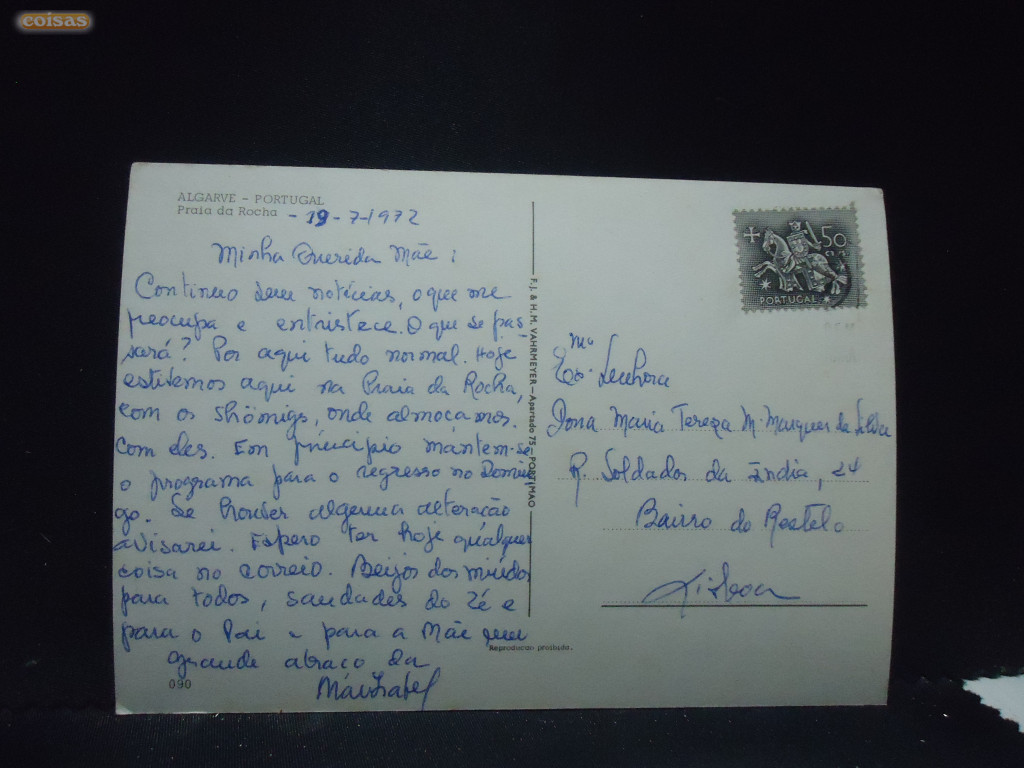 coisas
ALGARVE - PORTUGAL
Praia da Rocha - 19-7-1972
Minha Querida Mãe:
Continuo sem notícias, o que me
preocupa e entristece. O que se pas-
sará? Por aqui tudo normal. Hoje
estivemos aqui na Praia da Rocha,
com os Shömigs, onde almoçamos.
com eles. Em princípio mantem-se
o programa para o regresso no Domin
go. Se houver alguma alteração
avisarei. Espero ter hoje qualquer
coisa no correio. Beijos dos miúdos
para todos, saudades do Zé e
para o Pai e para a Mãe um
grande abraço da
090
F. J. & H. M. VAHRMEYER - Apartado 75 - PORTIMAO
Reproducion proibida.
50
PORTUGAL
Exma. Senhora
Dona Maria Tereza M. Marques da Silva
R. Soldados da Índia, 24
Bairro do Restelo
Lisboa